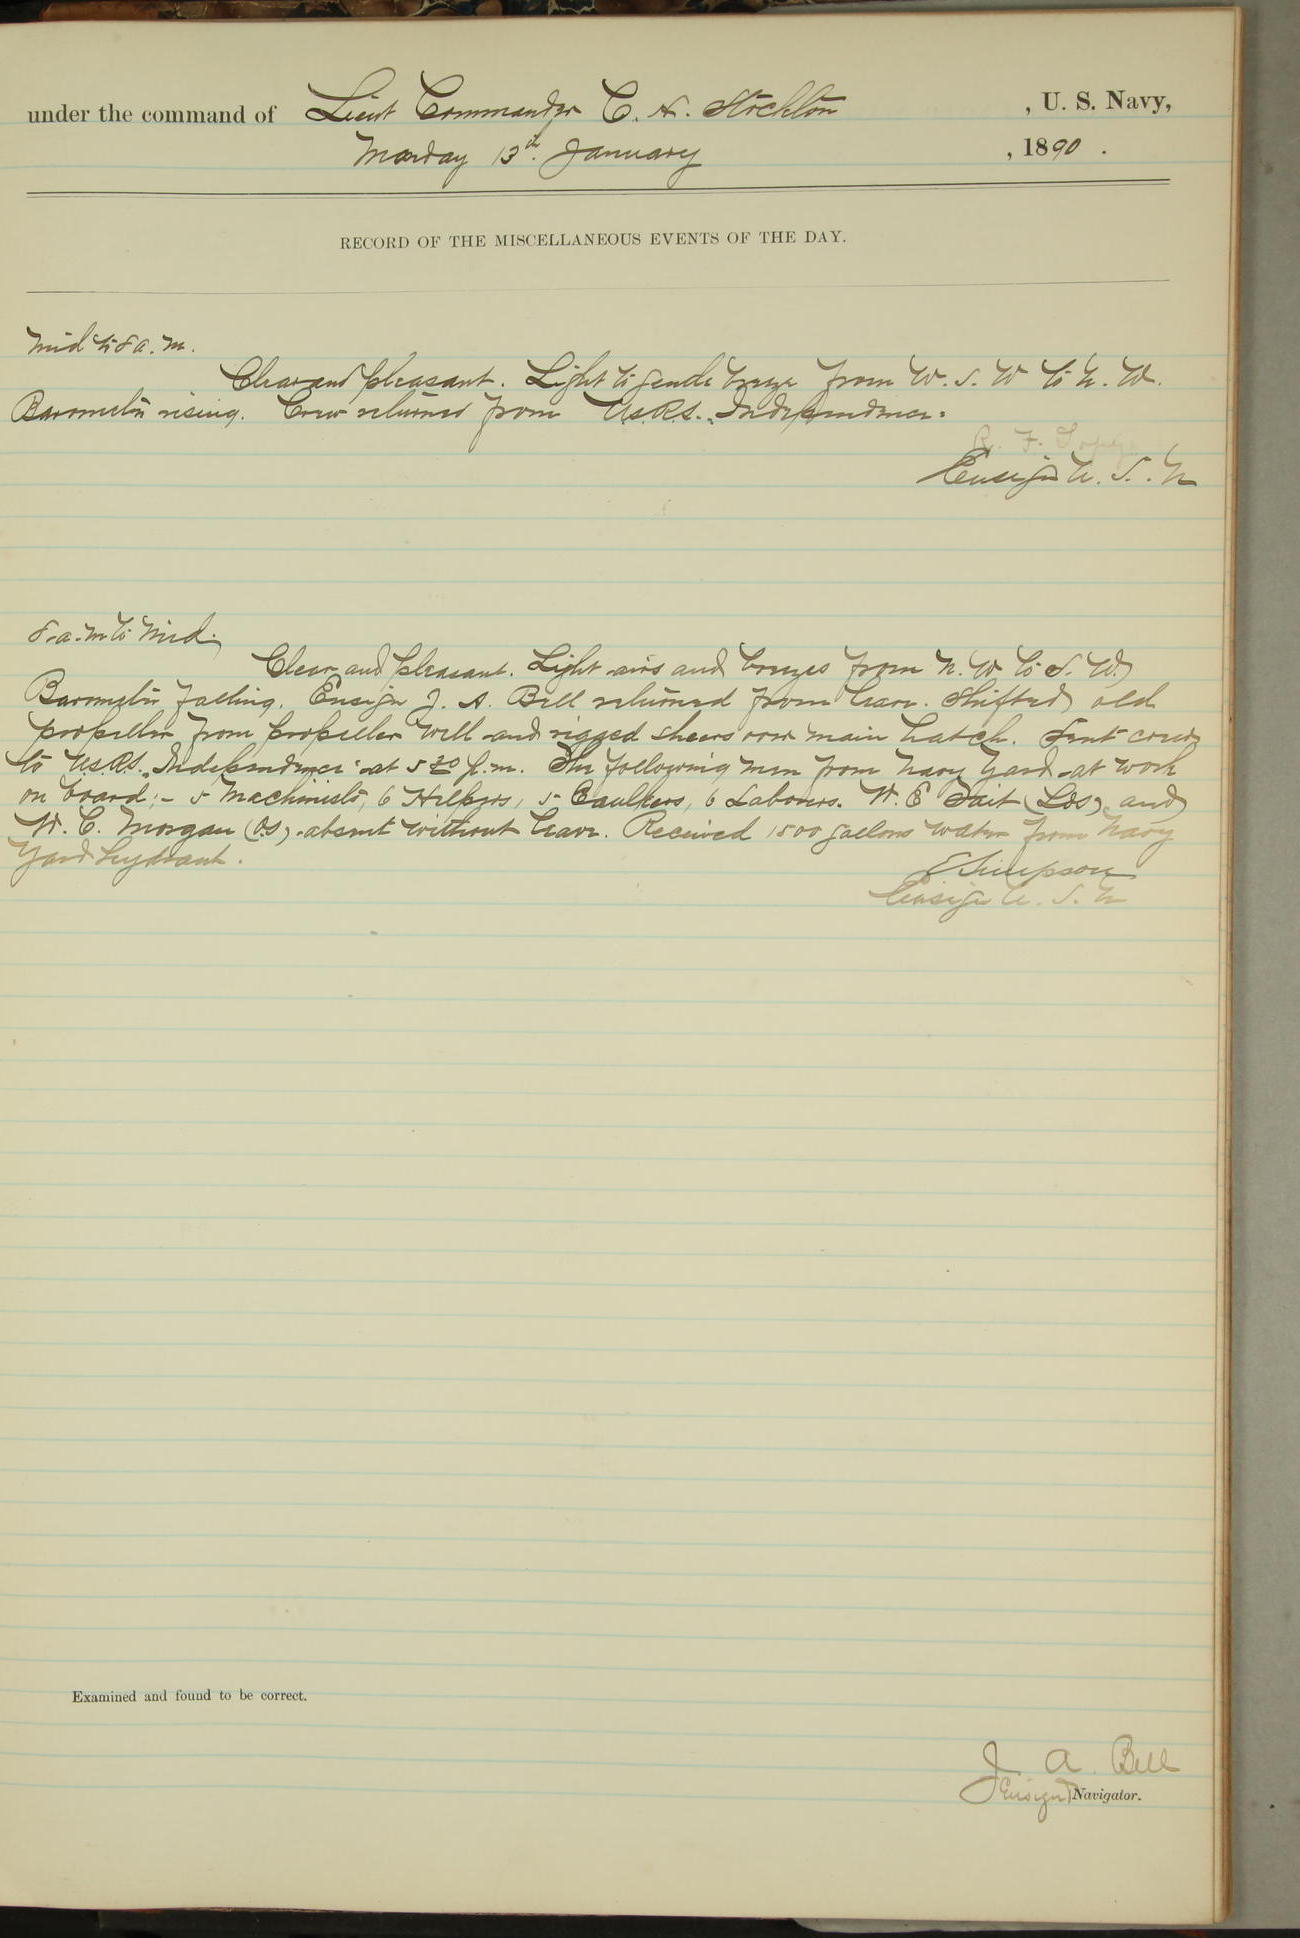 under the command of Lieut Commander C. H. Stockton , U. S. Navy,
Monday 13th. January , 1890 .
RECORD OF THE MISCELLANEOUS EVENTS OF THE DAY.
Mid to 8 a. m.
Clear and pleasant. Light to gentle breeze from W. S. W to N. W.
Barometer rising. Crew returned from U.S.R.S. "Independence."
R. F.
Ensign U. S. N
8. a. m to Mid.
Clear and pleasant. Light airs and breezes from N. W to S. W.
Barometer falling. Ensign J. A. Bell returned from leave. Shifted old
propeller from propeller well and rigged sheers over main hatch. Sent crew
to U.S.R.S. "Independence" at 5 20 p. m. The following men from Navy Yard at work
on board:- 5 Machinists, 6 Helpers, 5 Caulkers, 6 Laborers. W. E Tait (Lds) and
W. C. Morgan (O.S) absent without leave. Received 1500 gallons water from Navy
Yard hydrant.
E Simpson
Ensign U. S. N
Examined and found to be correct.
J. A. Bell
Ensign Navigator.